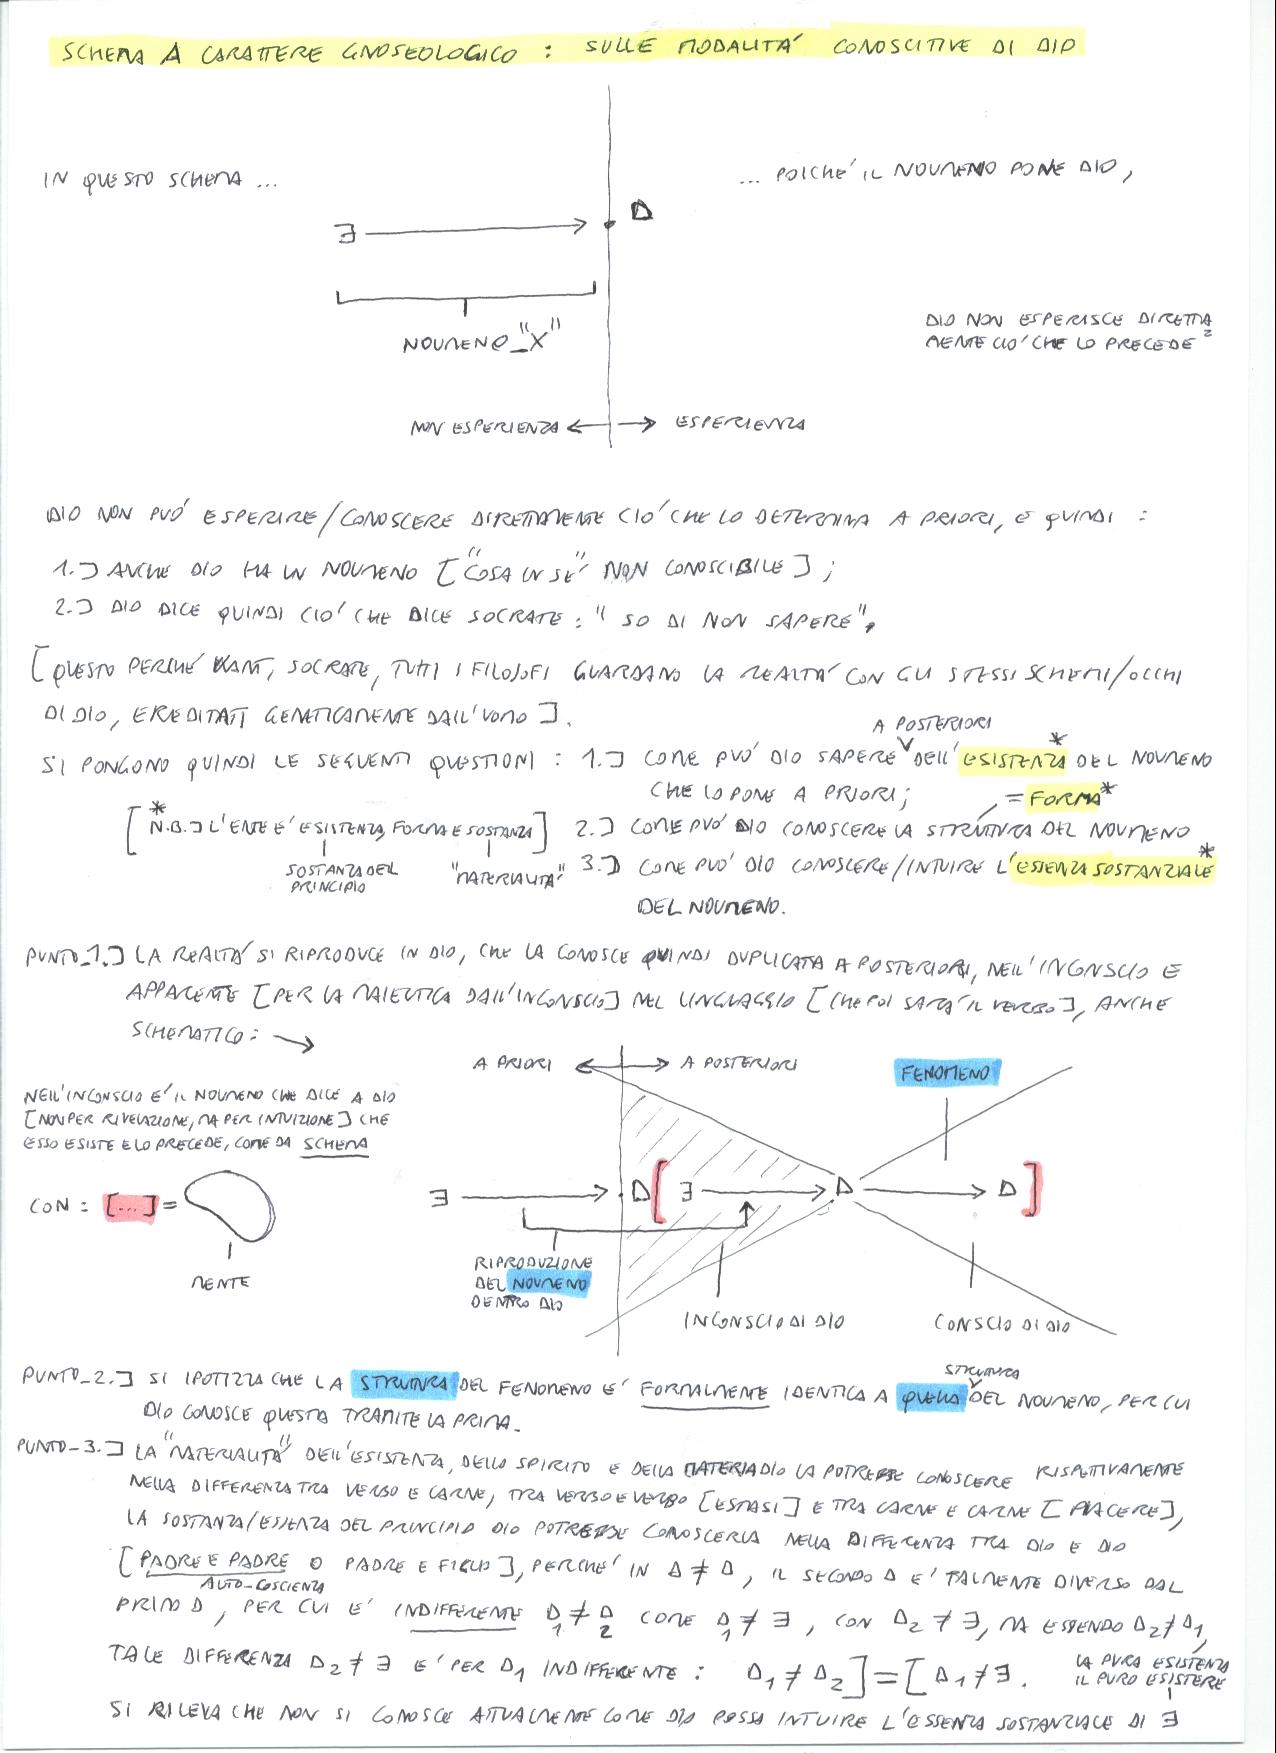 SCHEMA A CARATTERE GNOSEOLOGICO : SULLE MODALITA' CONOSCITIVE DI DIO
IN QUESTO SCHEMA ...
... POICHE' IL NOUMENO PONE DIO,
∃ D
NOUMENO_"X"
DIO NON ESPERISCE DIRETTA
MENTE CIO' CHE LO PRECEDE
NON ESPERIENZA ESPERIENZA
DIO NON PUO' ESPERIRE/CONOSCERE DIRETTAMENTE CIO' CHE LO DETERMINA A PRIORI, E QUINDI :
1.] ANCHE DIO HA UN NOUMENO ["COSA IN SE'" NON CONOSCIBILE] ;
2.] DIO DICE QUINDI CIO' CHE DICE SOCRATE : "SO DI NON SAPERE".
[QUESTO PERCHE' KANT, SOCRATE, TUTTI I FILOSOFI GUARDANO LA REALTA' CON GLI STESSI SCHEMI/OCCHI
DI DIO, EREDITATI GENETICAMENTE DALL'UOMO].
SI PONGONO QUINDI LE SEGUENTI QUESTIONI : 1.] COME PUO' DIO SAPERE A POSTERIORI DELL'ESISTENZA* DEL NOUMENO
CHE LO PONE A PRIORI;
= FORMA*
[* N.B.] L'ENTE E' ESISTENZA, FORMA E SOSTANZA]
SOSTANZA DEL
PRINCIPIO
"MATERIALITA'"
2.] COME PUO' DIO CONOSCERE LA STRUTTURA DEL NOUMENO
3.] COME PUO' DIO CONOSCERE/INTUIRE L'ESSENZA SOSTANZIALE*
DEL NOUMENO.
PUNTO_1.] LA REALTA' SI RIPRODUCE IN DIO, CHE LA CONOSCE QUINDI DUPLICATA A POSTERIORI, NELL'INCONSCIO E
APPARENTE [PER LA MAIEUTICA DALL'INCONSCIO] NEL LINGUAGGIO [CHE POI SARA' IL VERBO], ANCHE
SCHEMATICO :
A PRIORI A POSTERIORI
FENOMENO
NELL'INCONSCIO E' IL NOUMENO CHE DICE A DIO
[NON PER RIVELAZIONE, MA PER INTUIZIONE] CHE
ESSO ESISTE E LO PRECEDE, COME DA SCHEMA
CON : [...] =
MENTE
∃ D [ ∃ D D ]
RIPRODUZIONE
DEL NOUMENO
DENTRO DIO
INCONSCIO DI DIO
CONSCIO DI DIO
PUNTO_2.] SI IPOTIZZA CHE LA STRUTTURA DEL FENOMENO E' FORMALMENTE IDENTICA A QUELLA STRUTTURA DEL NOUMENO, PER CUI
DIO CONOSCE QUESTA TRAMITE LA PRIMA.
PUNTO_3.] LA "MATERIALITA'" DELL'ESISTENZA, DELLO SPIRITO E DELLA MATERIA DIO LA POTREBBE CONOSCERE RISPETTIVAMENTE
NELLA DIFFERENZA TRA VERBO E CARNE, TRA VERBO E VERBO [ESTASI] E TRA CARNE E CARNE [PIACERE],
LA SOSTANZA/ESSENZA DEL PRINCIPIO DIO POTREBBE CONOSCERLA NELLA DIFFERENZA TRA DIO E DIO
[PADRE E PADRE O PADRE E FIGLIO], PERCHE' IN D ≠ D, IL SECONDO D E' TALMENTE DIVERSO DAL
AUTO-COSCIENZA
PRIMO D, PER CUI E' INDIFFERENTE D1 ≠ D2 COME D1 ≠ ∃, CON D2 ≠ ∃, MA ESSENDO D2 ≠ D1,
TALE DIFFERENZA D2 ≠ ∃ E' PER D1 INDIFFERENTE : D1 ≠ D2] = [D1 ≠ ∃.
LA PURA ESISTENZA
IL PURO ESISTERE
SI RILEVA CHE NON SI CONOSCE ATTUALMENTE COME DIO POSSA INTUIRE L'ESSENZA SOSTANZIALE DI ∃